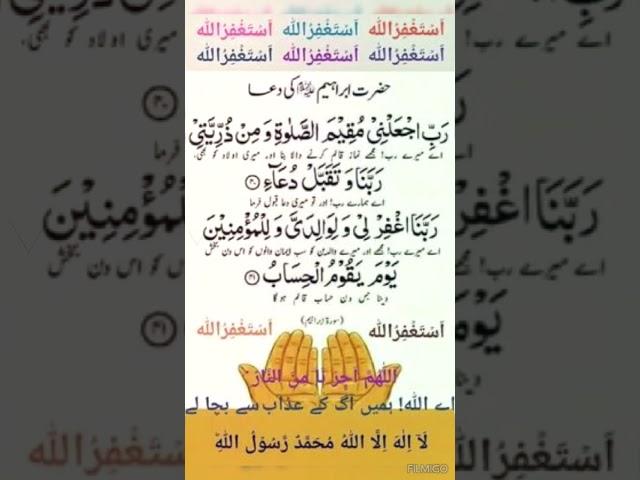 اَسْتَغْفِرُاللّٰه اَسْتَغْفِرُاللّٰه اَسْتَغْفِرُاللّٰه
اَسْتَغْفِرُاللّٰه اَسْتَغْفِرُاللّٰه اَسْتَغْفِرُاللّٰه
حضرت ابراہیم ﷺ کی دعا
رَبِّ اجْعَلْنِیْ مُقِیْمَ الصَّلٰوةِ وَ مِنْ ذُرِّیَّتِیْ
اے میرے رب! مجھے نماز قائم کرنے والا بنا اور میری اولاد کو بھی،
رَبَّنَا وَ تَقَبَّلْ دُعَآءِ ﴿۴۰﴾
اے ہمارے رب! اور تو میری دعا قبول فرما
رَبَّنَا اغْفِرْ لِیْ وَ لِوَالِدَیَّ وَ لِلْمُؤْمِنِیْنَ
اے میرے رب! مجھے اور میرے والدین کو سب ایمان والوں کو اس دن بخش
یَوْمَ یَقُوْمُ الْحِسَابُ ﴿۴۱﴾
دینا جس دن حساب قائم ہو گا
(سورۃ ابراہیم)
اَسْتَغْفِرُاللّٰه اَسْتَغْفِرُاللّٰه
اَللّٰهُمَّ اَجِرْ نَا مِنَ النَّارْ
اے اللہ! ہمیں آگ کے عذاب سے بچا لے
لَآ اِلٰهَ اِلَّا اللّٰهُ مُحَمَّدٌ رَّسُوْلُ اللّٰهِ
FILMIGO